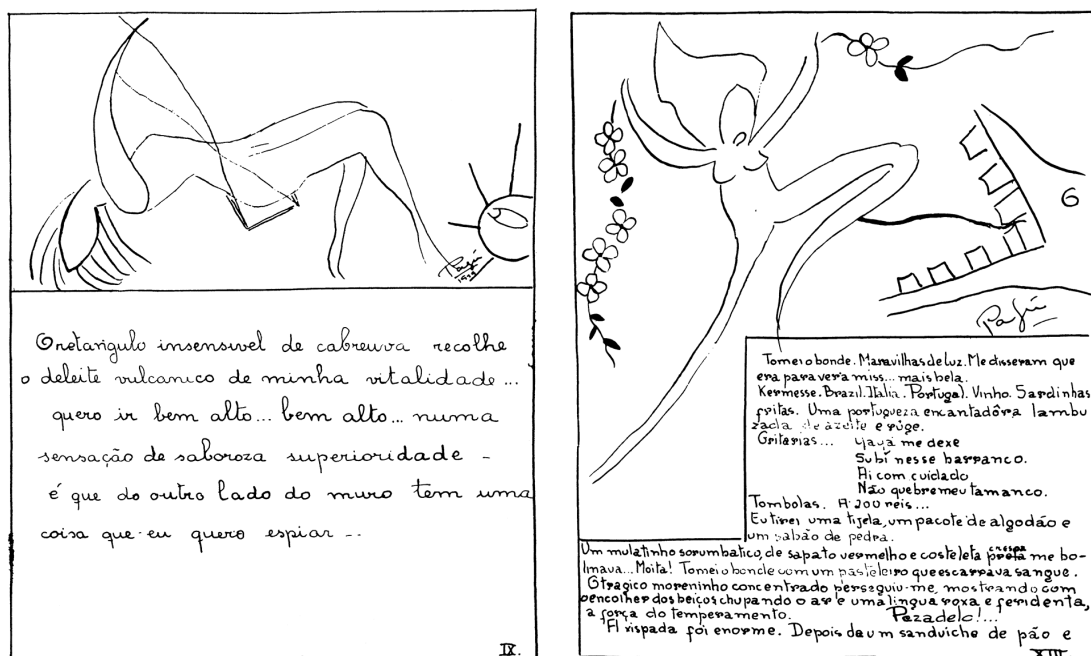 Pagú
1929
O retangulo insensivel de cabreuva recolhe
o deleite vulcanico de minha vitalidade...
quero ir bem alto... bem alto... numa
sensação de saboroza superioridade -
é que do outro lado do muro tem uma
coisa que eu quero espiar ..
IX.
6
Pagú
Tomei o bonde. Maravilhas de luz. Me disseram que
era para ver a miss... mais bela.
Kermesse. Brazil. Italia. Portugal. Vinho. Sardinhas
fritas. Uma portugueza encantadôra lambu
zada de azeite e ruge.
Gritarias... Yayá me dexe
Subí nesse barranco.
Ai com cuidado
Não quebre meu tamanco.
Tombolas. A 200 reis...
Eu tirei uma tijela, um pacote de algodão e
um sabão de pedra.
Um mulatinho sorumbatico, de sapato vermelho e costeleta crespa preta me bo-
linava... Moita! Tomei o bonde com um pasteleiro que escarrava sangue.
O tragico moreninho concentrado perseguiu-me, mostrando com
o encolher dos beiços chupando o ar e uma lingua roxa e feridenta,
a força do temperamento. Pezadelo!...
A rispada foi enorme. Depois de um sanduiche de pão e
XIII